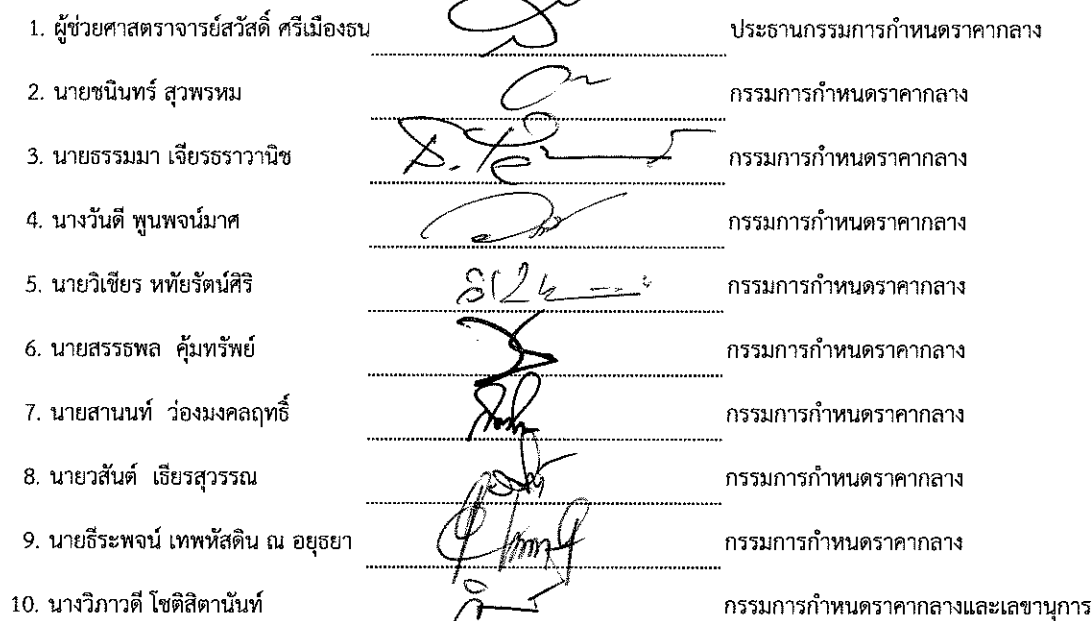 1. ผู้ช่วยศาสตราจารย์สวัสดิ์ ศรีเมืองธน ประธานกรรมการกำหนดราคากลาง
2. นายชนินทร์ สุวพรหม กรรมการกำหนดราคากลาง
3. นายธรรมมา เจียรธราวานิช กรรมการกำหนดราคากลาง
4. นางวันดี พูนพจน์มาศ กรรมการกำหนดราคากลาง
5. นายวิเชียร หทัยรัตน์ศิริ กรรมการกำหนดราคากลาง
6. นายสรรธพล คุ้มทรัพย์ กรรมการกำหนดราคากลาง
7. นายสานนท์ ว่องมงคลฤทธิ์ กรรมการกำหนดราคากลาง
8. นายวสันต์ เธียรสุวรรณ กรรมการกำหนดราคากลาง
9. นายธีระพจน์ เทพหัสดิน ณ อยุธยา กรรมการกำหนดราคากลาง
10. นางวิภาวดี โชติสิตานันท์ กรรมการกำหนดราคากลางและเลขานุการ